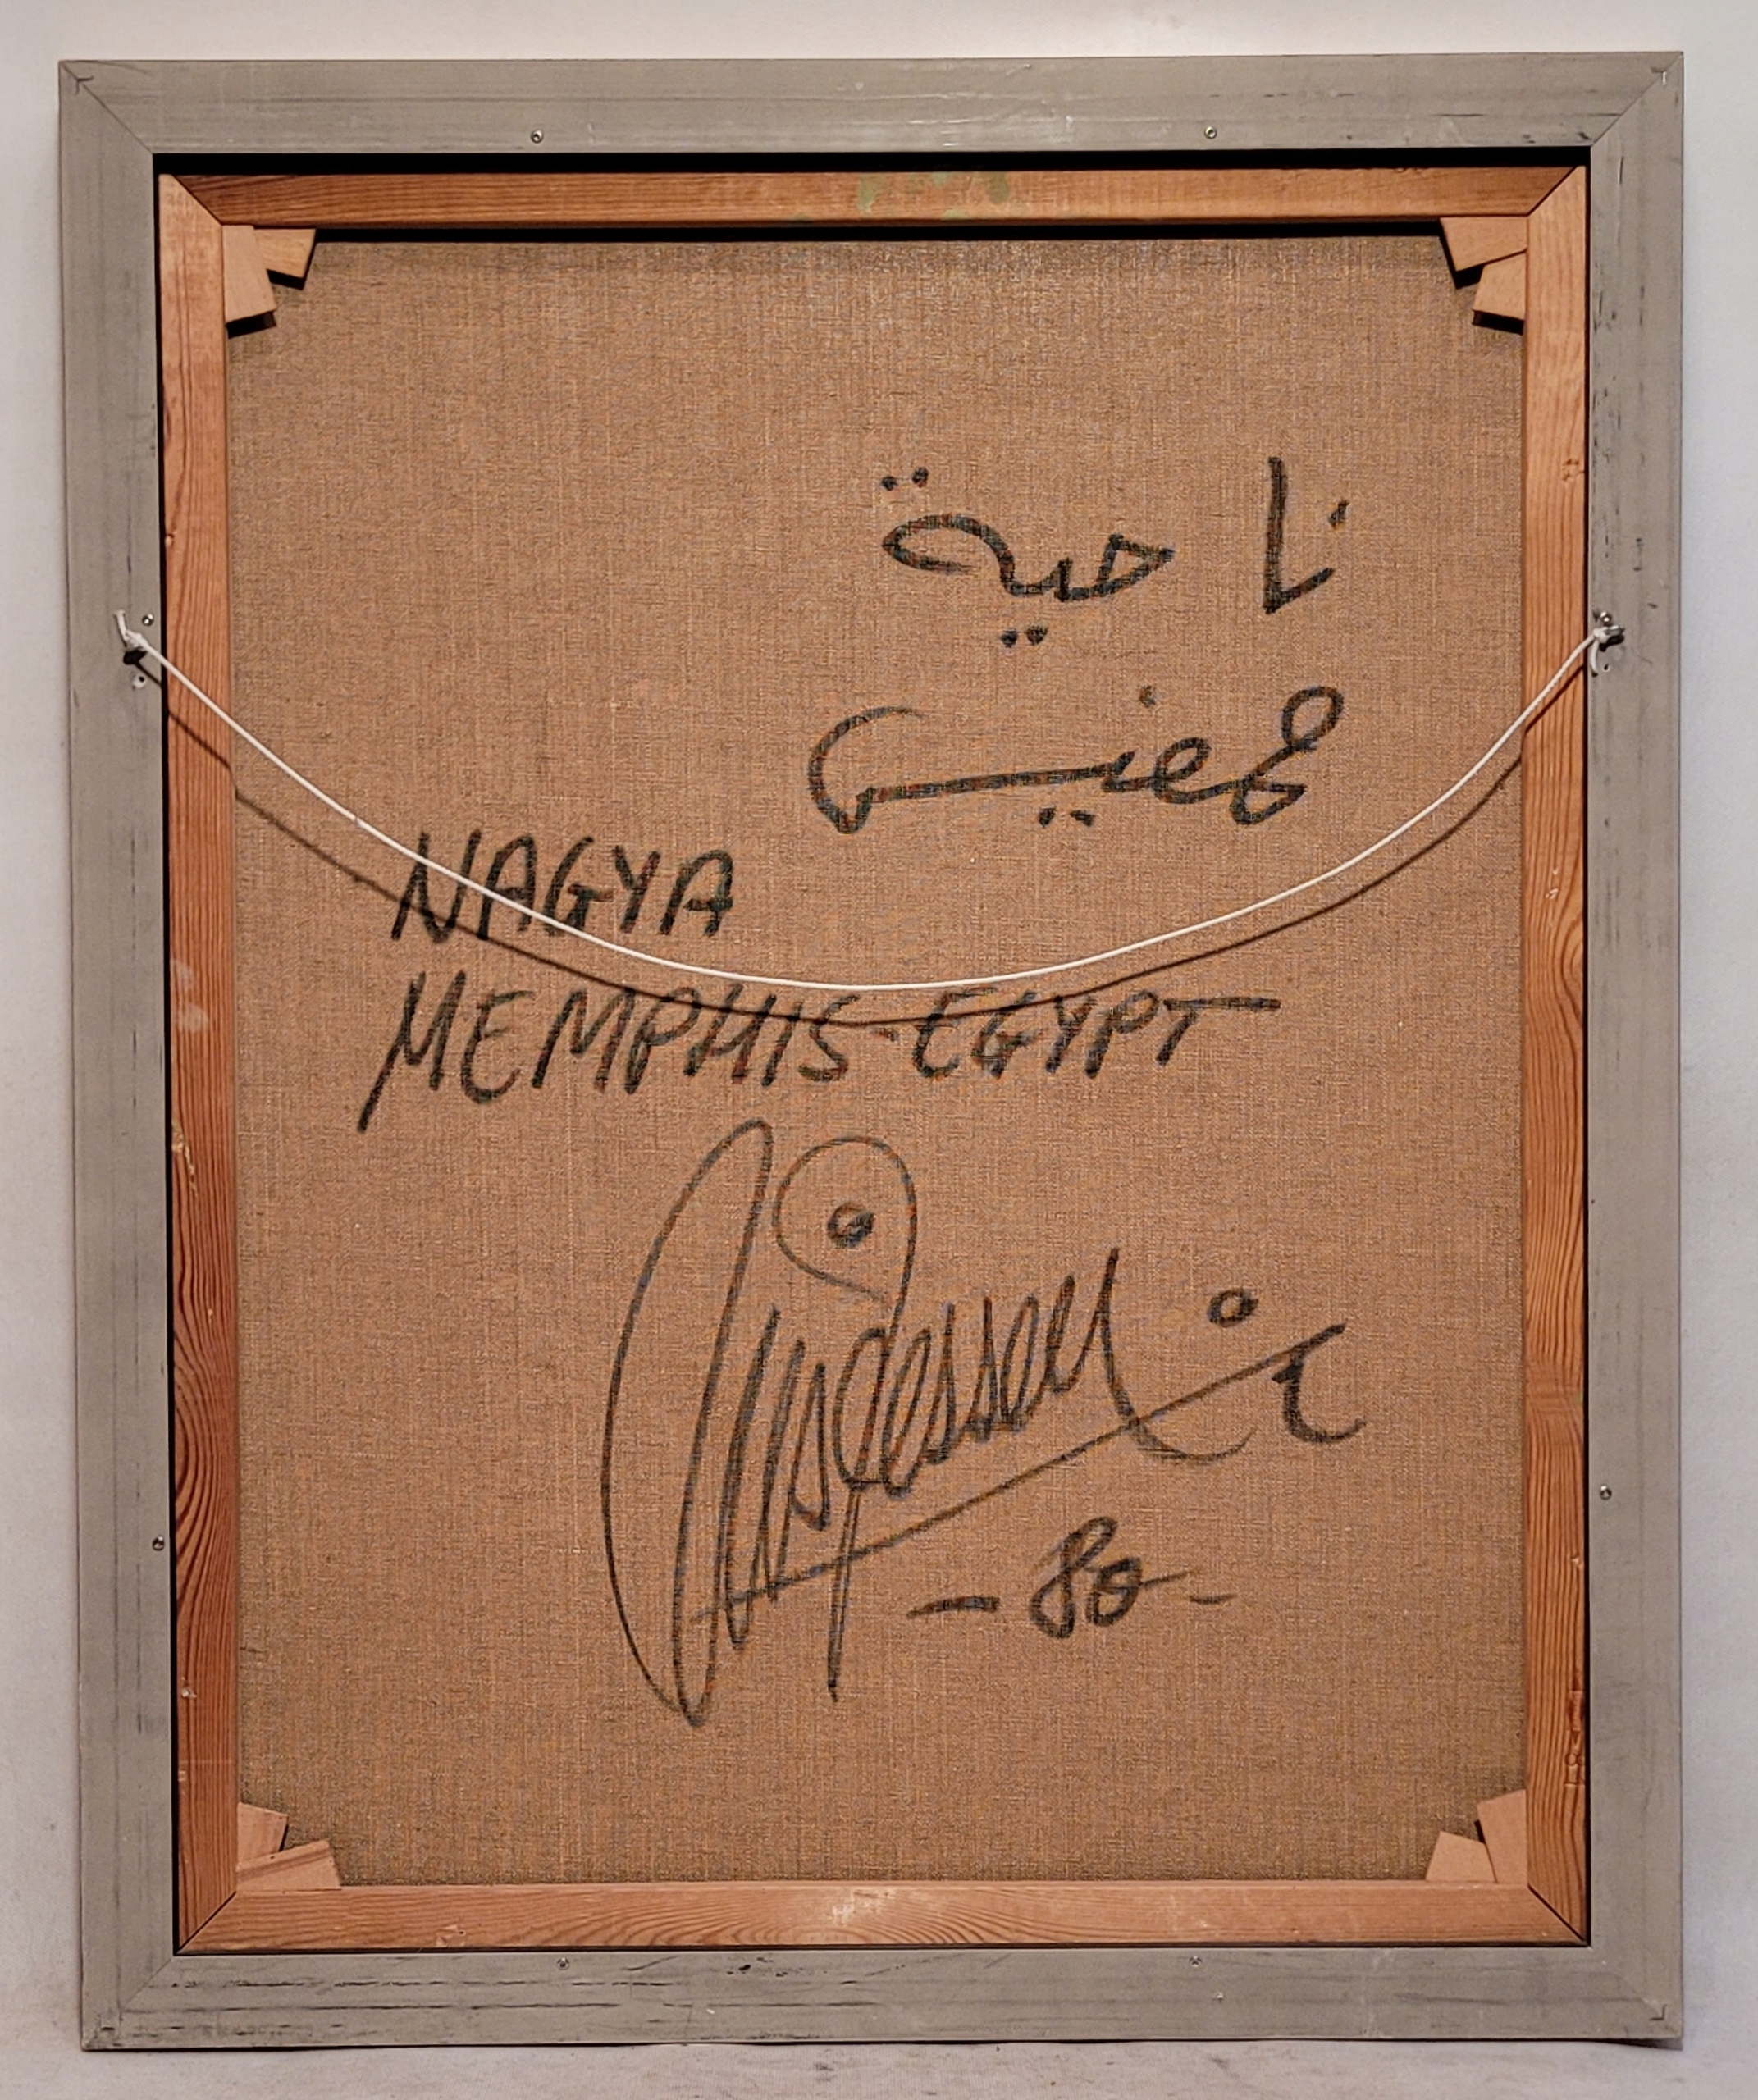 ناحية
ممفيس
NAGYA
MEMPHIS-EGYPT
-80-